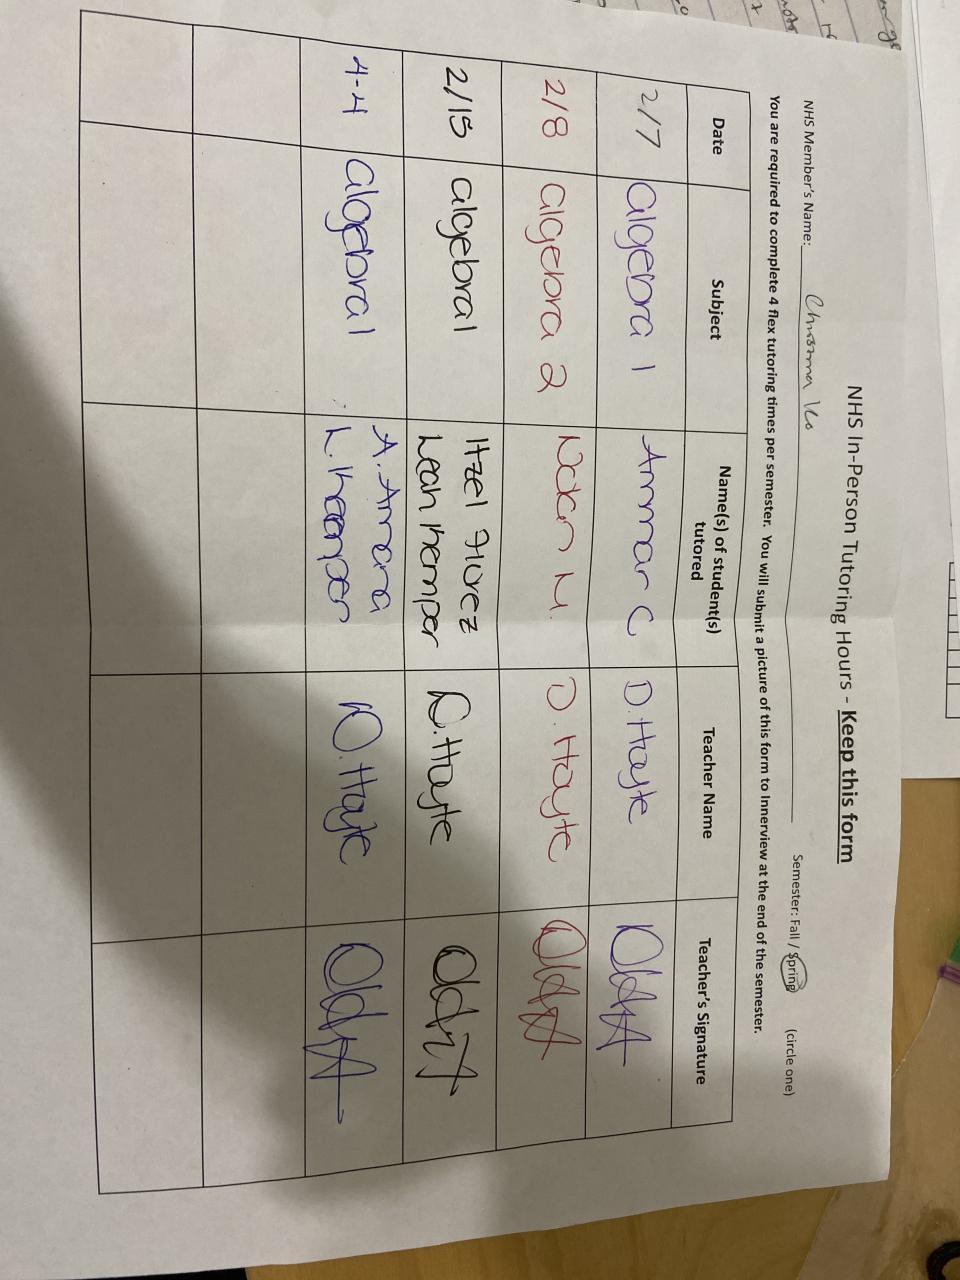 NHS In-Person Tutoring Hours - Keep this form
NHS Member's Name: Semester: Fall / Spring (circle one)
You are required to complete 4 flex tutoring times per semester. You will submit a picture of this form to Innerview at the end of the semester.
Date Subject Name(s) of student(s) tutored Teacher Name Teacher's Signature
2/7 algebra 1 Ammar C D. Hoyte
2/8 algebra 2 M. D. Hoyte
2/15 algebra1 Itzel Leah Kemper D. Hoyte
4-4 algebra1 A. L. D. Hoyte